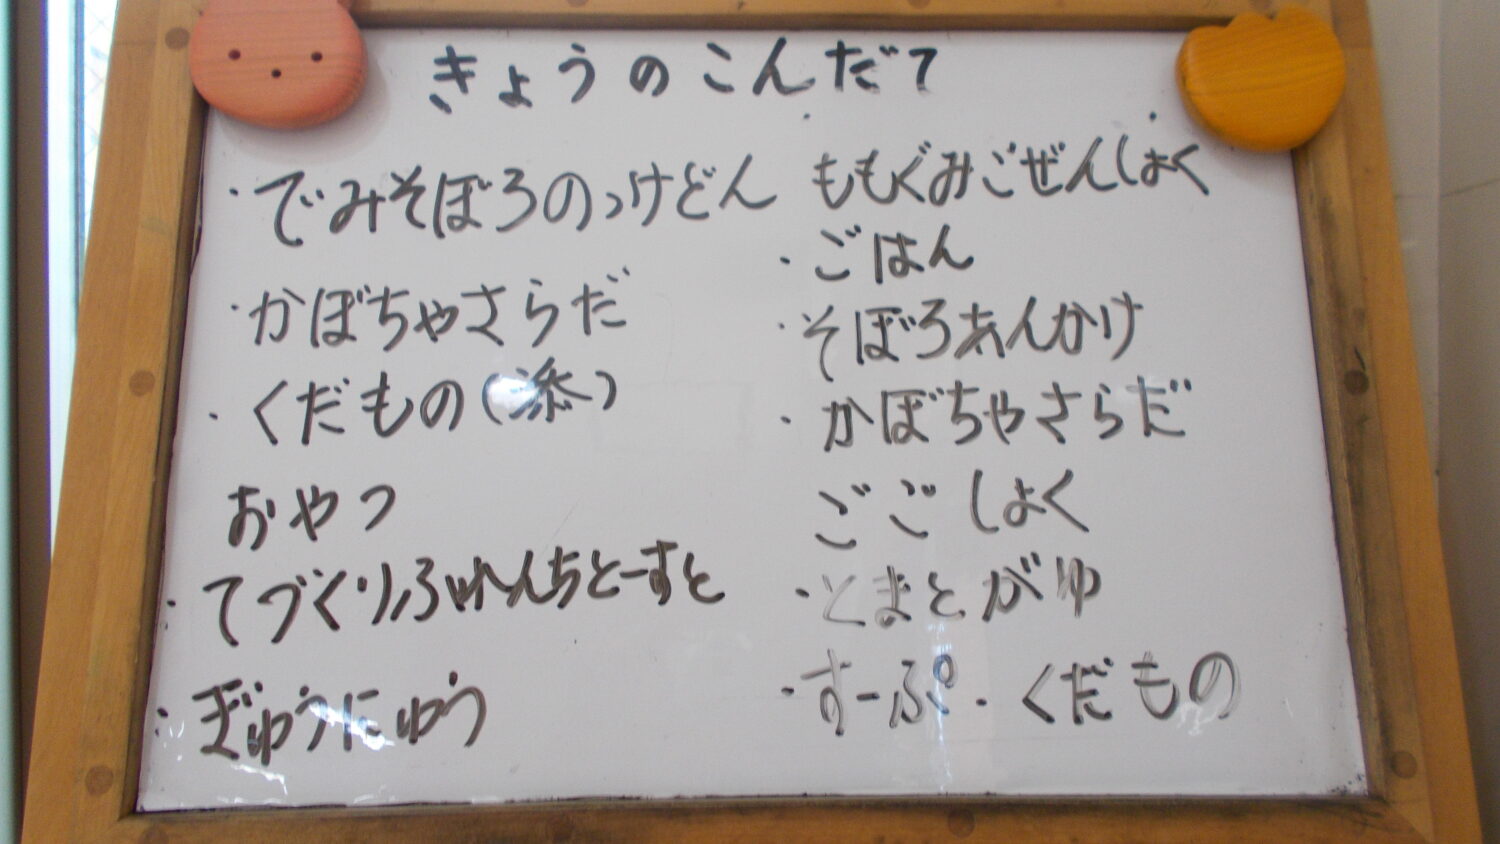 きょうのこんだて
・でみそぼろのっけどん
・かぼちゃさらだ
・くだもの(添)
おやつ
・てづくりふれんちとーすと
・ぎゅうにゅう
ももぐみごぜんしょく
・ごはん
・そぼろあんかけ
・かぼちゃさらだ
ごごしょく
・とまとがゆ
・すーぷ・くだもの